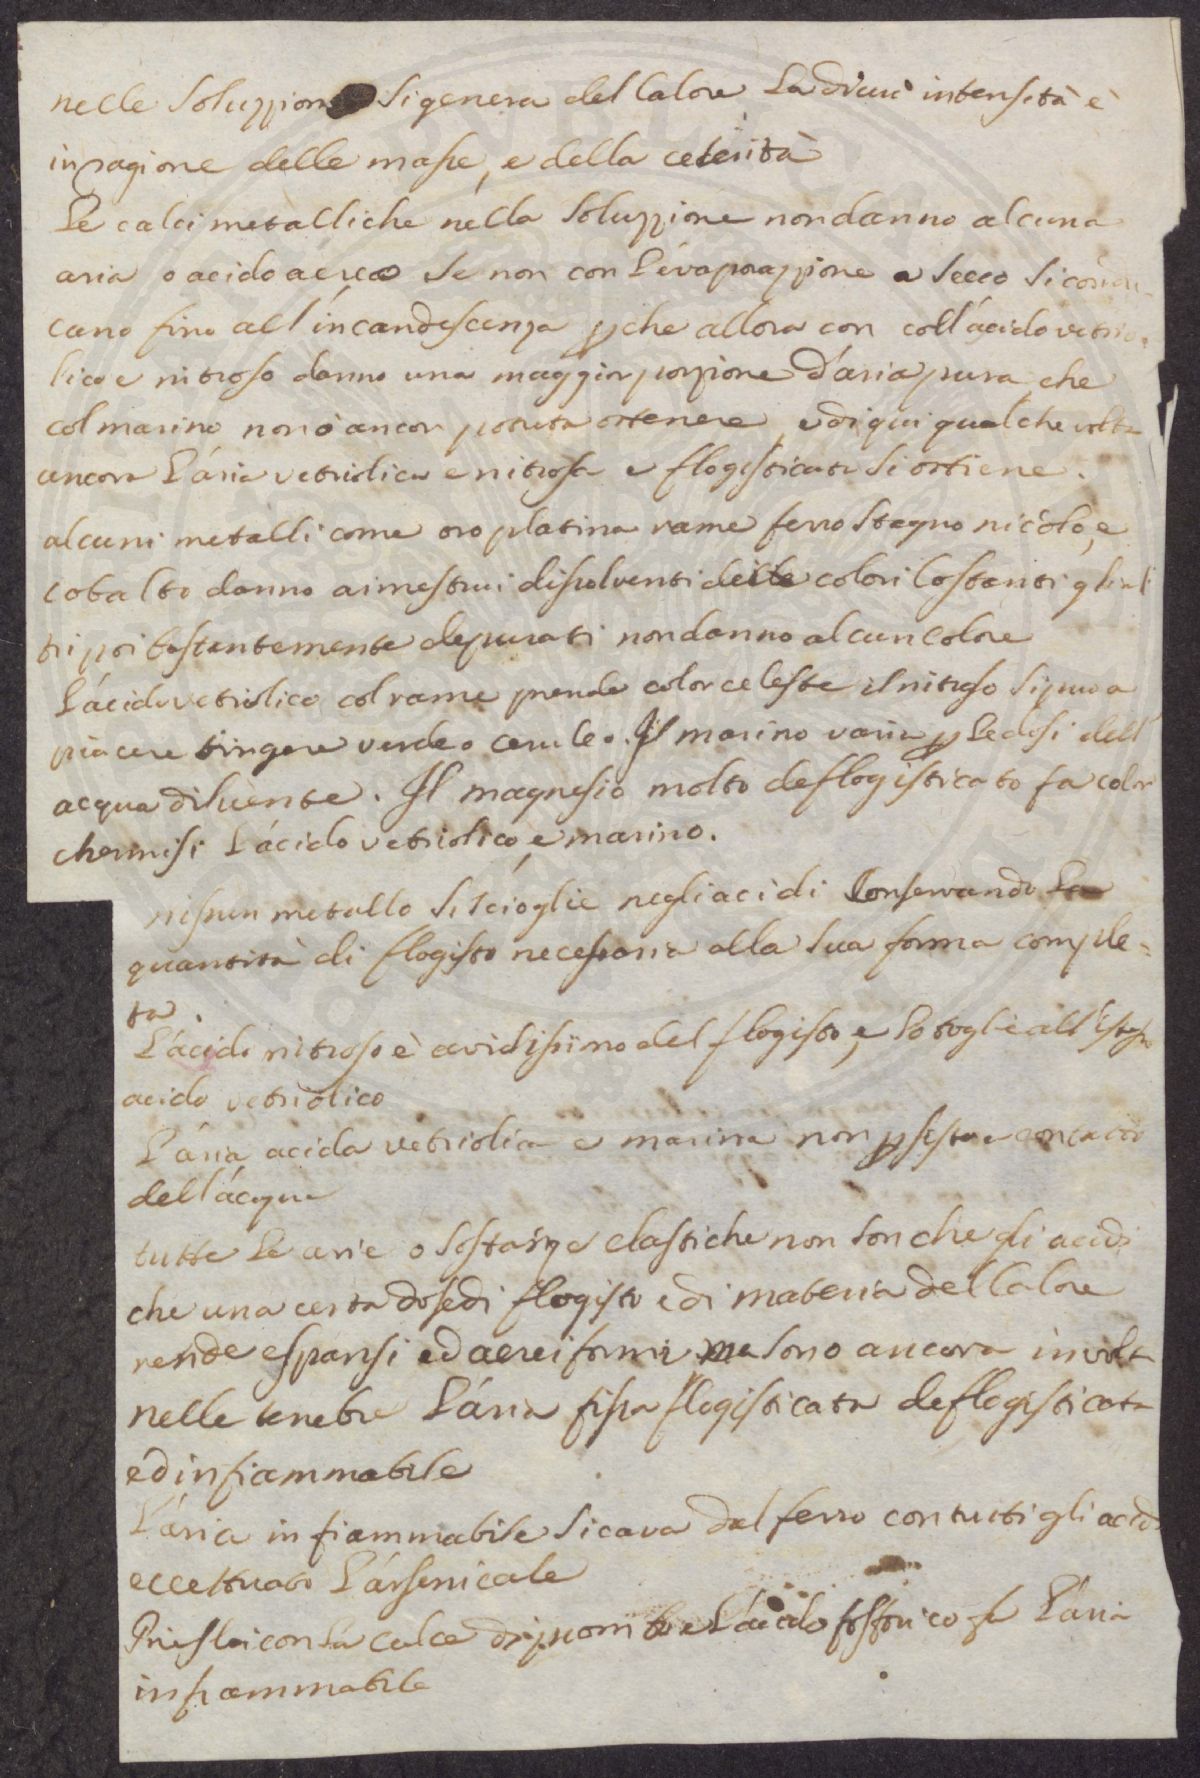 nelle Soluzzion Si genera del Calore La di cui intensità è
in ragione delle masse, e della celerità
Le calci metalliche nella Soluzzione non danno alcuna
aria o acido aereo Se non con L'evaporazzione a Secco Si
cano fino all'incandescenza pche allora con coll'acido vetrio-
lico e nitroso danno una maggior porzione d'aria pura che
col marino non è ancor potuta ottenere e di qui qualche volta
ancora L'aria vetriolica e nitrosa e flogisticata Si ottiene.
alcuni metalli come oro platina rame ferro Stagno nicolo, e
cobalto danno ai mestrui dissolventi delle colori Costanti gl'al
tri poi bastantemente depurati non danno alcun Colore
L'acido vetriolico col rame prende color celeste il nitroso Si può a
piacere tingere verde o ceruleo. Il marino varia p Le dosi dell'
acqua diluente. Il magnesio molto deflogisticato fa color
chermisi L'acido vetriolico, e marino.
nissun metallo Si Scioglie negli acidi Conservando La
quantità di flogisto necessaria alla Sua forma comple-
ta.
L'acido nitroso è avidissimo del flogisto, e Lo toglie all'istesso
acido vetriolico
L'aria acida vetriolica e marina non psiste a contatto
dell'acqua
tutte Le arie o Sostanze elastiche non Son che gli acidi
che una certa dose di flogisto e di materia del Calore
rende espansi ed aereiformi ma Sono ancora involte
nelle tenebre L'aria fissa flogisticata deflogisticata
ed infiammabile
L'aria infiammabile Si cava dal ferro con tutti gli acidi
eccettuato L'arsenicale
Prieslei con La calce di piombo e L'acido fosforico fe L'aria
infiammabile